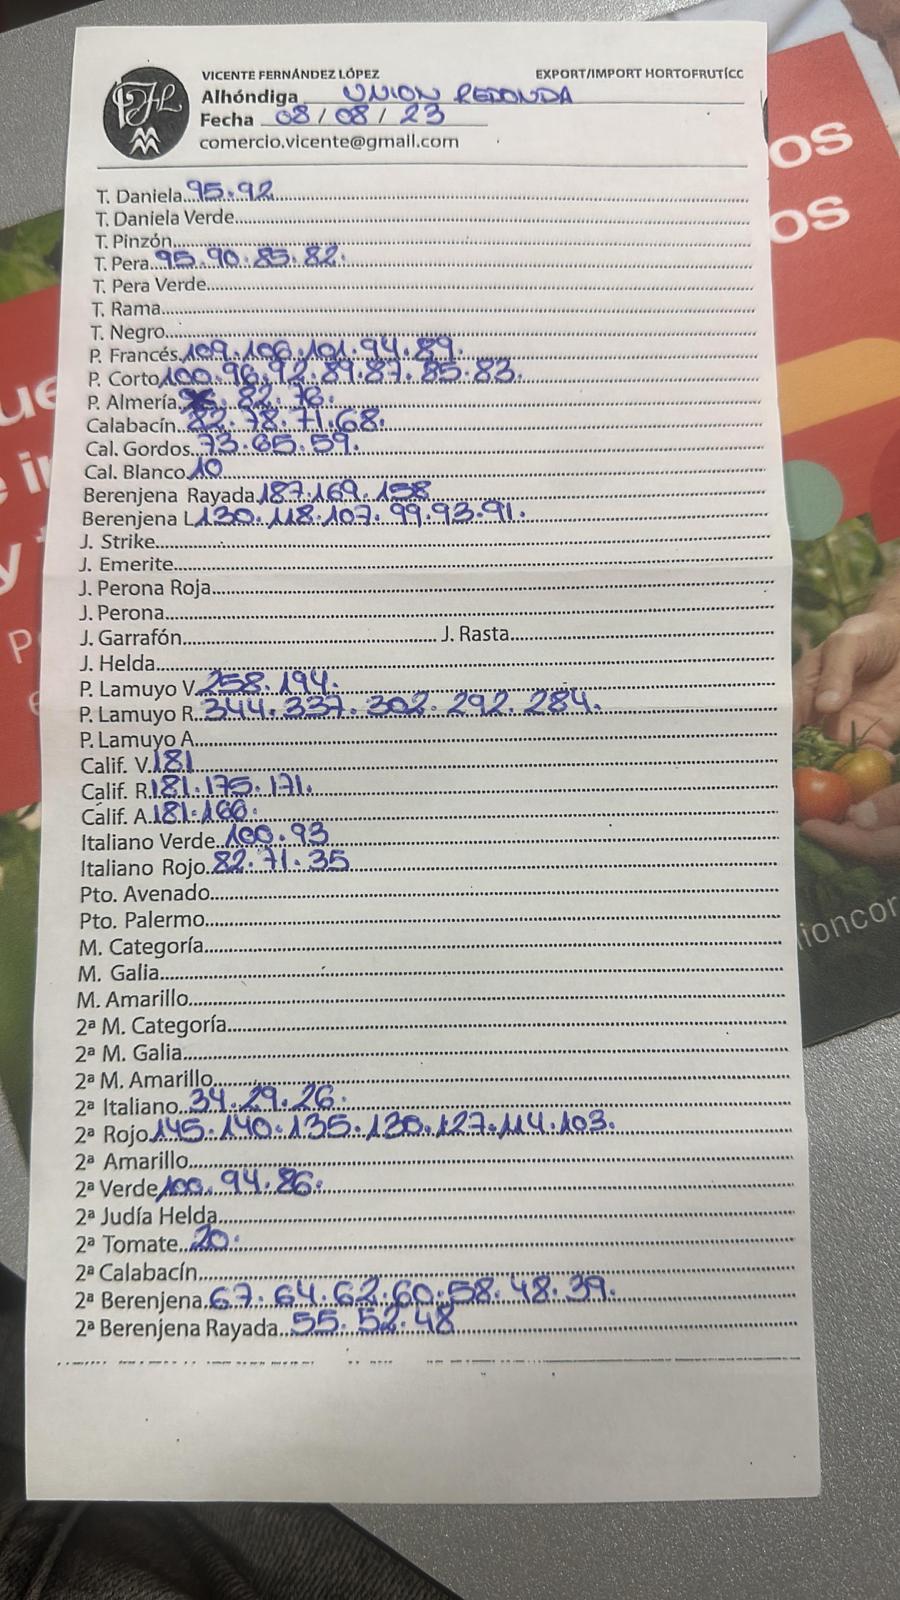 VICENTE FERNÁNDEZ LÓPEZ EXPORT/IMPORT HORTOFRUTÍCC
Alhóndiga UNION REDONDA
Fecha 08/08/23
comercio.vicente@gmail.com
T. Daniela 95.92
T. Daniela Verde
T. Pinzón
T. Pera 95.90.85.82.
T. Pera Verde
T. Rama
T. Negro
P. Francés 109.106.101.94.89.
P. Corto 100.96.92.89.87.85.83.
P. Almería 82.76.
Calabacín 82.78.71.68.
Cal. Gordos 73.65.59.
Cal. Blanco 10
Berenjena Rayada 187.169.158
Berenjena L 130.118.107.99.93.91.
J. Strike
J. Emerite
J. Perona Roja
J. Perona
J. Garrafón J. Rasta
J. Helda
P. Lamuyo V. 258.194.
P. Lamuyo R. 344.337.302.292.284.
P. Lamuyo A.
Calif. V. 181
Calif. R. 181.175.171.
Calif. A. 181.166.
Italiano Verde 100.93
Italiano Rojo 82.71.35
Pto. Avenado
Pto. Palermo
M. Categoría
M. Galia
M. Amarillo
2ª M. Categoría
2ª M. Galia
2ª M. Amarillo
2ª Italiano 34.29.26.
2ª Rojo 145.140.135.130.127.114.103.
2ª Amarillo
2ª Verde 100.94.86.
2ª Judía Helda
2ª Tomate 20.
2ª Calabacín
2ª Berenjena 67.64.62.60.58.48.39.
2ª Berenjena Rayada 55.52.48
os
os
ue
y
ioncor